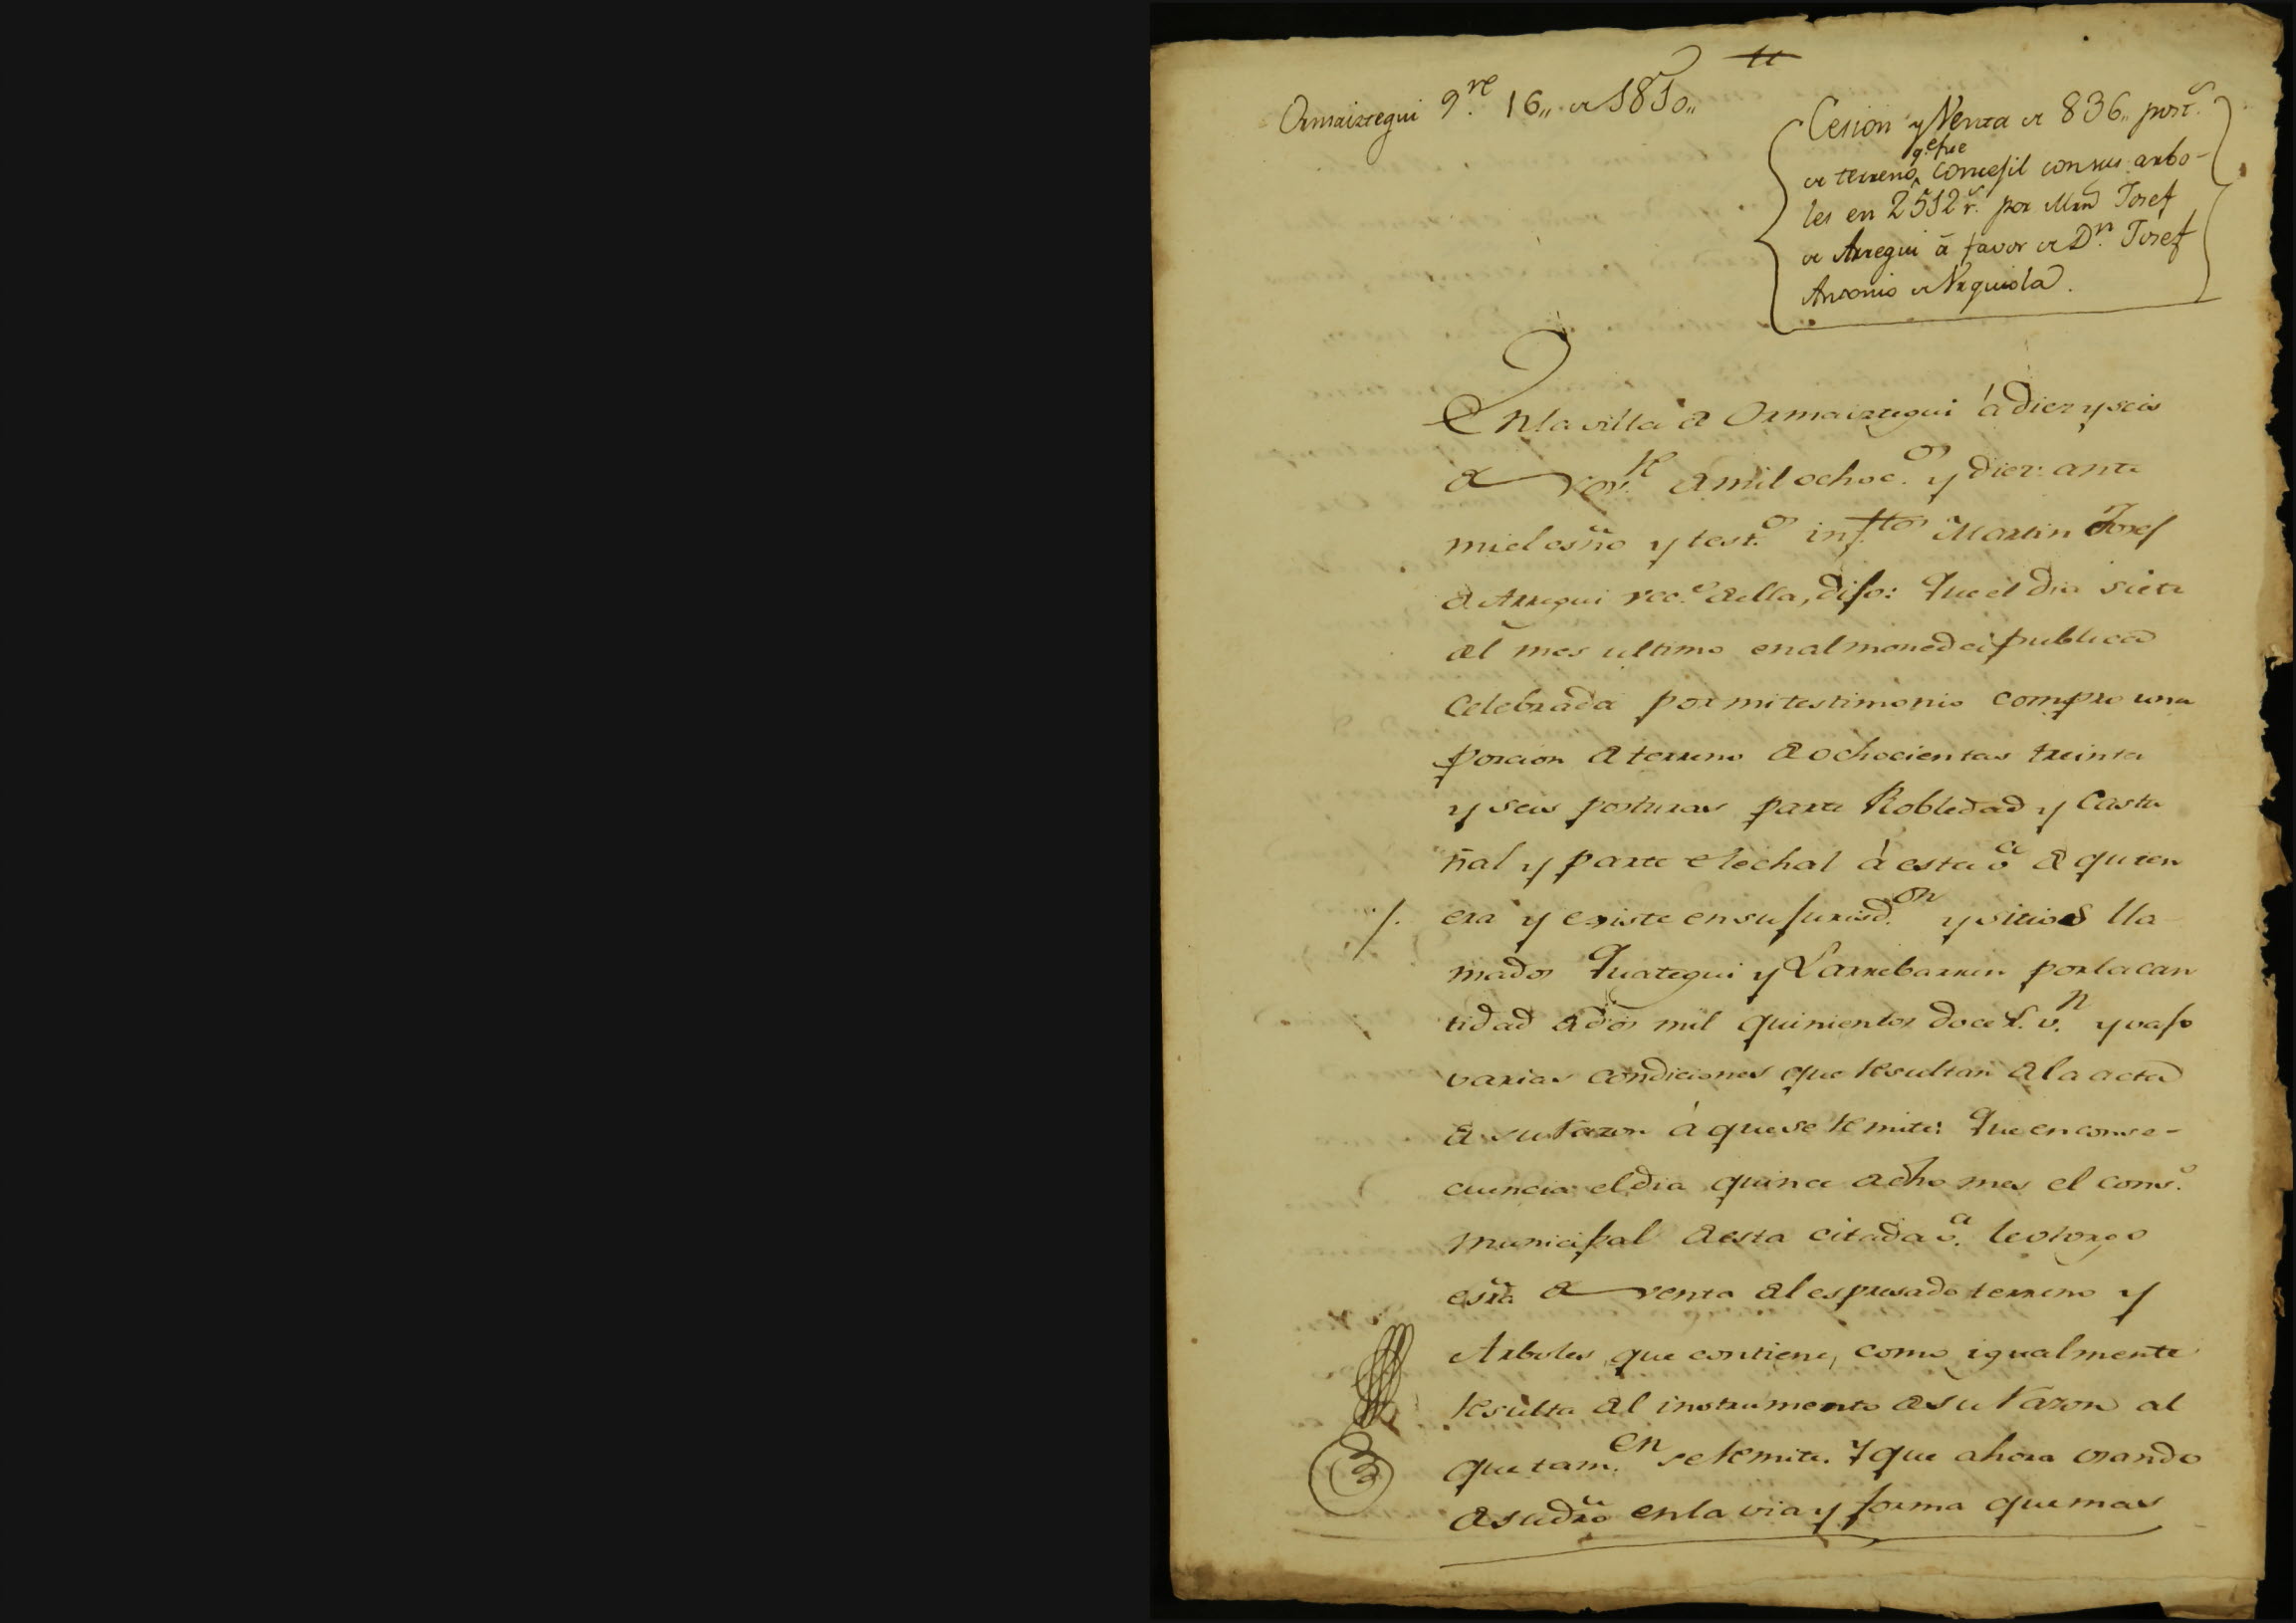 Ormaiztegui 9.re 16,, de 1810,,
Cesion y Venta de 836,, post.s
q.e fue
de terreno concejil con sus arbo-
les en 2512 r.s por Mrn Josef
de Arregui á favor de D.n Josef
Antonio de Vrquiola.
En la villa de Ormaiztegui á diez y seis
de Nov.re de mil ochoc.os y diez: ante
mi el esño y test.os inf.tos Martin Josef
de Arregui vec.o de ella, dijo: Que el dia siete
del mes ultimo en almoneda publica
celebrada por mi testimonio compro una
porcion de terreno de ochocientas treinta
y seis posturas parte Robledad y Casta
ñal y parte elechal á esta v.a de quien
/. era y existe en su jurisd.on y sitios lla
mados Yuategui y Larrebarren por la can
tidad de dos mil quinientos doce r. v.n y vajo
varias condiciones que resultan de la acta
de su razon á que se remite: Que en conse-
cuencia el dia quince de dho mes el cons.o
municipal de esta citada v.a le otorgo
esrã de venta del espresado terreno y
Arboles que contiene, como igualmente
resulta del instrumento de su razon al
que tam.en se remite. Y que ahora vsando
de su dro en la via y forma que mas